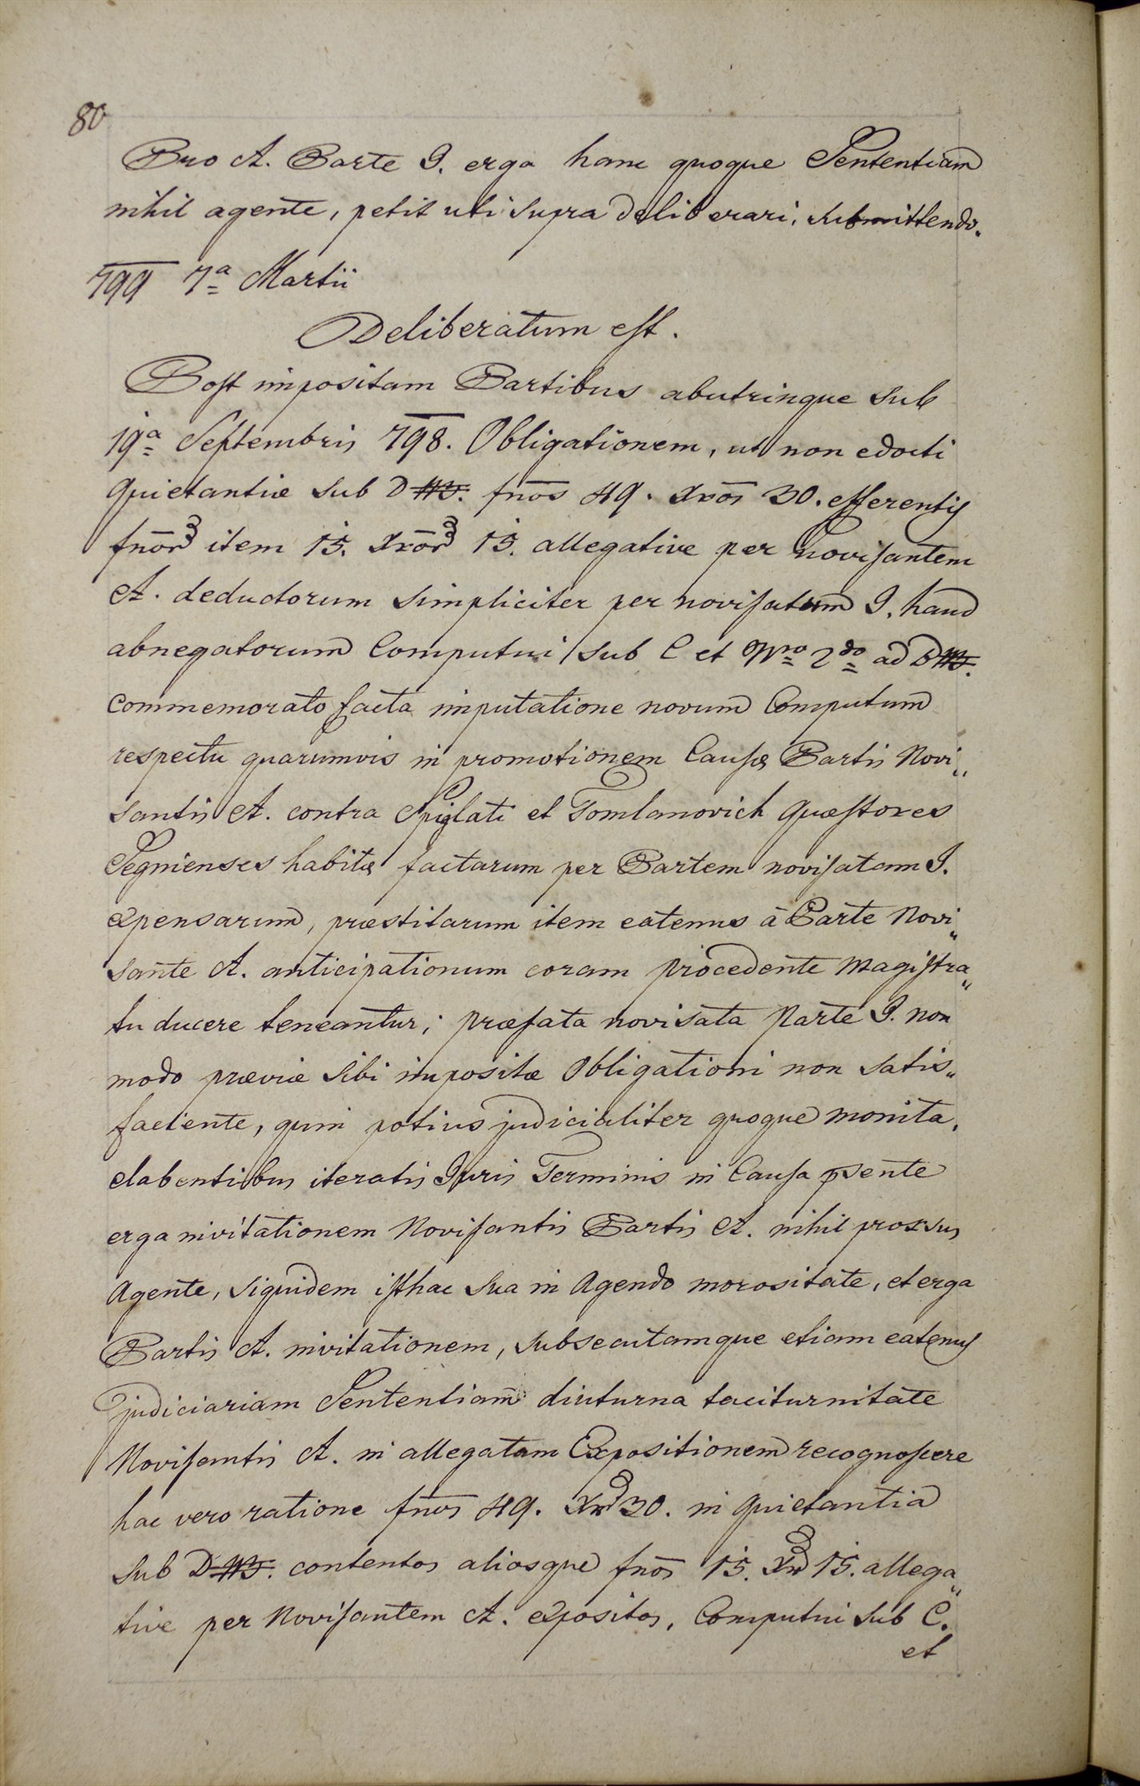 80
Pro A. Parte I. erga hanc quoque Sententiam
nihil agente, petit uti supra deliberari, submittendo.
799 7a Martii
Deliberatum est.
Post impositam Partibus abutrinque sub
19a Septembris 798. Obligationem, ut non edocti
Quietantiæ sub D fnos 49. Xros 30. efferentis
fnor item 15. Xror 15. allegative per Novisantem
A. deductorum simpliciter per novisatum I. haud
abnegatorum Computui sub C et Nro 2do ad D
commemorato facta imputatione novum Computum
respectu quarumvis in promotionem Causæ Partis Novi„
santis A. contra Spiglati et Tomlanovich Quæstores
Segnienses habitæ factarum per Partem novisatam I.
expensarum, præstitarum item eatenus à Parte Novi„
sante A. anticipationum coram procedente Magistra„
tu ducere teneantur; præfata novisata Parte I. non
modo præviæ sibi impositæ Obligationi non satis„
faciente, quin potius judicialiter quoque monita,
elabentibus iteratis Juris Terminis in Causa psente
erga invitationem Novisantis Partis A. nihil prorsus
Agente, siquidem isthac sua in Agendo morositate, et erga
Partis A. invitationem, subsecutamque etiam eatenus
judiciariam Sententiam diuturna taciturnitate
Novisantis A. in allegatam Expositionem recognoscere
hac vero ratione fnos 49. Xr 30. in Quietantia
sub D contentos aliosque fnos 15. Xr 15. allega„
tive per Novisantem A. expositos, Computui sub C.
et